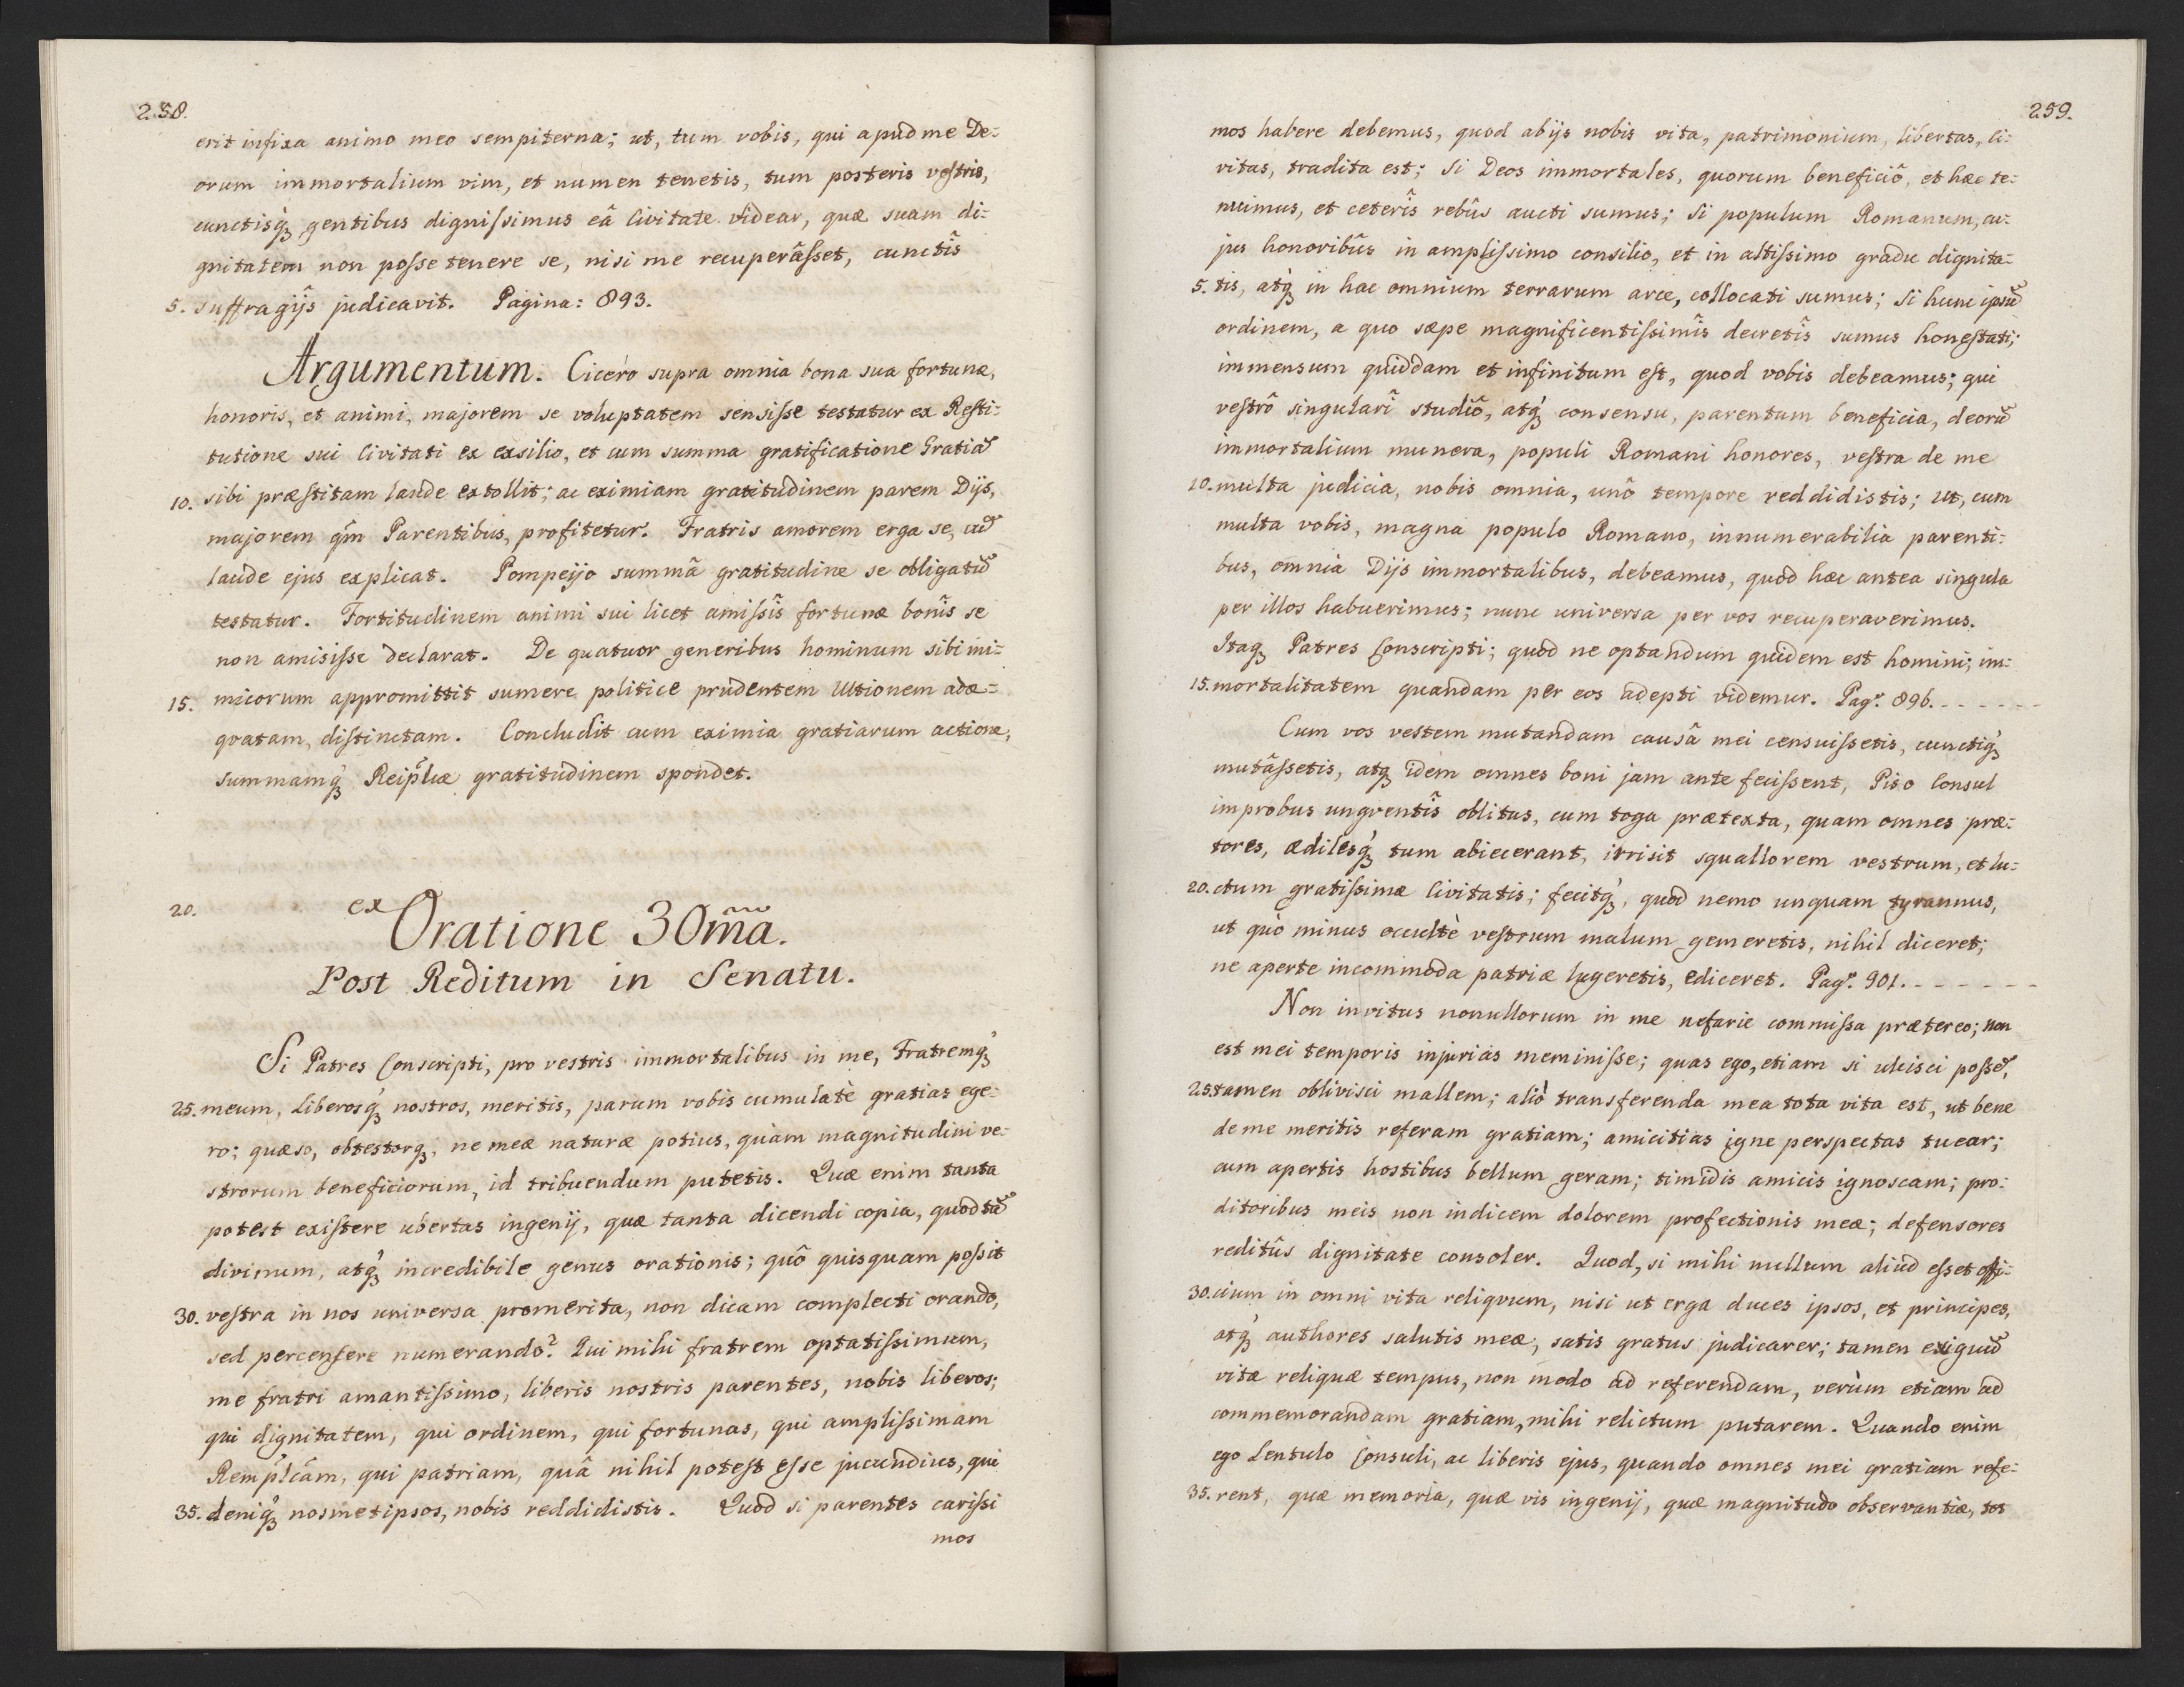 258.
erit infixa animo meo sempiterna; ut, tum vobis, qui apud me De:
orum immortalium vim, et numen tenetis, tum posteris vestris,
cunctisq́ꝫ gentibus dignissimus eâ Civitate videar, quæ suam di:
gnitatem non posse tenere se, nisi me recuperâsset, cunctîs
5. suffragijs judicavit. Pagina: 893.
Argumentum. Cicero supra omnia bona sua fortunæ,
honoris, et animi, majorem se voluptatem sensisse testatur ex Resti:
tutione sui Civitati ex exsilio, et cum summa gratificatione Gratiã
10. sibi præstitam laude extollit; ac eximiam gratitudinem parem Dijs,
majorem q̃m Parentibus, profitetur. Fratris amorem erga se, cũ
laude ejus explicat. Pompeijo summâ gratitudine se obligatũ
testatur. Fortitudinem animi sui licet amissîs fortunæ bonîs se
non amisisse declarat. De quatuor generibus hominum sibi ini:
15. micorum appromittit sumere politice prudentem Ultionem adæ:
quatam, distinctam. Concludit cum eximia gratiarum actione,
summamq́ꝫ Reip̃licæ gratitudinem spondet.
20. ex Oratione 30m̃a.
Post Reditum in Senatu.
Si Patres Conscripti, pro vestris immortalibus in me, Fratremq́ꝫ
25. meum, Liberosq́ꝫ nostros, meritis, parum vobis cumulatè gratias ege:
ro; quæso, obtestorqꝫ, ne meæ naturæ potius, quàm magnitudini ve:
strorum beneficiorum, id tribuendum putetis. Quæ enim tanta
potest existere ubertas ingenij, quæ tanta dicendi copia, quod tã
divinum, atq́ꝫ incredibile genus orationis; quô quisquam possit
30. vestra in nos universa promerita, non dicam complecti orando,
sed percensere numerando? Qui mihi fratrem optatissimum,
me fratri amantissimo, liberis nostris parentes, nobis liberos;
qui dignitatem, qui ordinem, qui fortunas, qui amplissimam
Remp̃lcãm, qui patriam, quâ nihil potest esse jucundius, qui
35. deniq́ꝫ nosmetipsos, nobis reddidistis. Quod si parentes carissi
mos
259.
mos habere debemus, quod ab ijs nobis vita, patrimonium, libertas, Ci:
vitas, tradita est; Si Deos immortales, quorum beneficiô, et hæc te:
nuimus, et ceterîs rebûs aucti sumus; Si populum Romanum, cu:
jus honoribûs in amplissimo consilio, et in altissimo gradu dignita:
5. tis, atq́ꝫ in hac omnium terrarum arce, collocati sumus; Si hunc ipsũ
ordinem, a quo sæpe magnificentissimîs decretîs sumus honestati;
immensum quiddam et infinitum est, quod vobis debeamus; qui
vestrô singularî studiô, atq́ꝫ consensu, parentum beneficia, deorũ
immortalium munera, populi Romani honores, vestra de me
10. multa judicia, nobis omnia, unô tempore reddidistis; ut, cum
multa vobis, magna populo Romano, innumerabilia parenti:
bus, omnia Dijs immortalibus, debeamus, quod hæc antea singula
per illos habuerimus; nunc universa per vos recuperaverimus.
Itaqꝫ Patres Conscripti; quod ne optandum quidem est homini; im:
15. mortalitatem quandam per eos adepti videmur. Pagᵃ: 896. - - - - - -
Cum vos vestem mutandam causâ mei censuissetis, cunctiq́ꝫ
mutâssetis, atqꝫ idem omnes boni jam ante fecissent, Piso Consul
improbus ungventîs oblitus, cum toga prætexta, quam omnes præ:
tores, ædilesq́ꝫ tum abiecerant, irrisit squallorem vestrum, et lu:
20. ctum gratissimæ Civitatis; fecitq́ꝫ, quod nemo unquam tyrannus,
ut quò minus occultè vestrum malum gemeretis, nihil diceret;
ne aperte incommoda patriæ lugeretis, ediceret. Pagᵃ: 901. - - - - - - -
Non invitus nonullorum in me nefarie commissa prætereo; non
est mei temporis injurias meminisse; quas ego, etiam si ulcisci possẽ,
25. tamen oblivisci mallem; aliò transferenda mea tota vita est, ut bene
de me meritis referam gratiam; amicitias igne perspectas tuear;
cum apertis hostibus bellum geram; timidis amicis ignoscam; pro:
ditoribus meis non indicem dolorem profectionis meæ; defensores
reditûs dignitate consoler. Quod, si mihi nullum aliud esset offi:
30. cium in omni vita reliqvum, nisi ut erga duces ipsos, et principes,
atq́ꝫ authores salutis meæ, satis gratus judicarer; tamen exiguũ
vitæ reliquæ tempus, non modo ad referendam, verùm etiam ad
commemorandam gratiam, mihi relictum putarem. Quando enim
ego Lentulo Consuli, ac liberis ejus, quando omnes mei gratiam refe:
35. rent, quæ memoria, quæ vis ingenij, quæ magnitudo observantiæ, tot